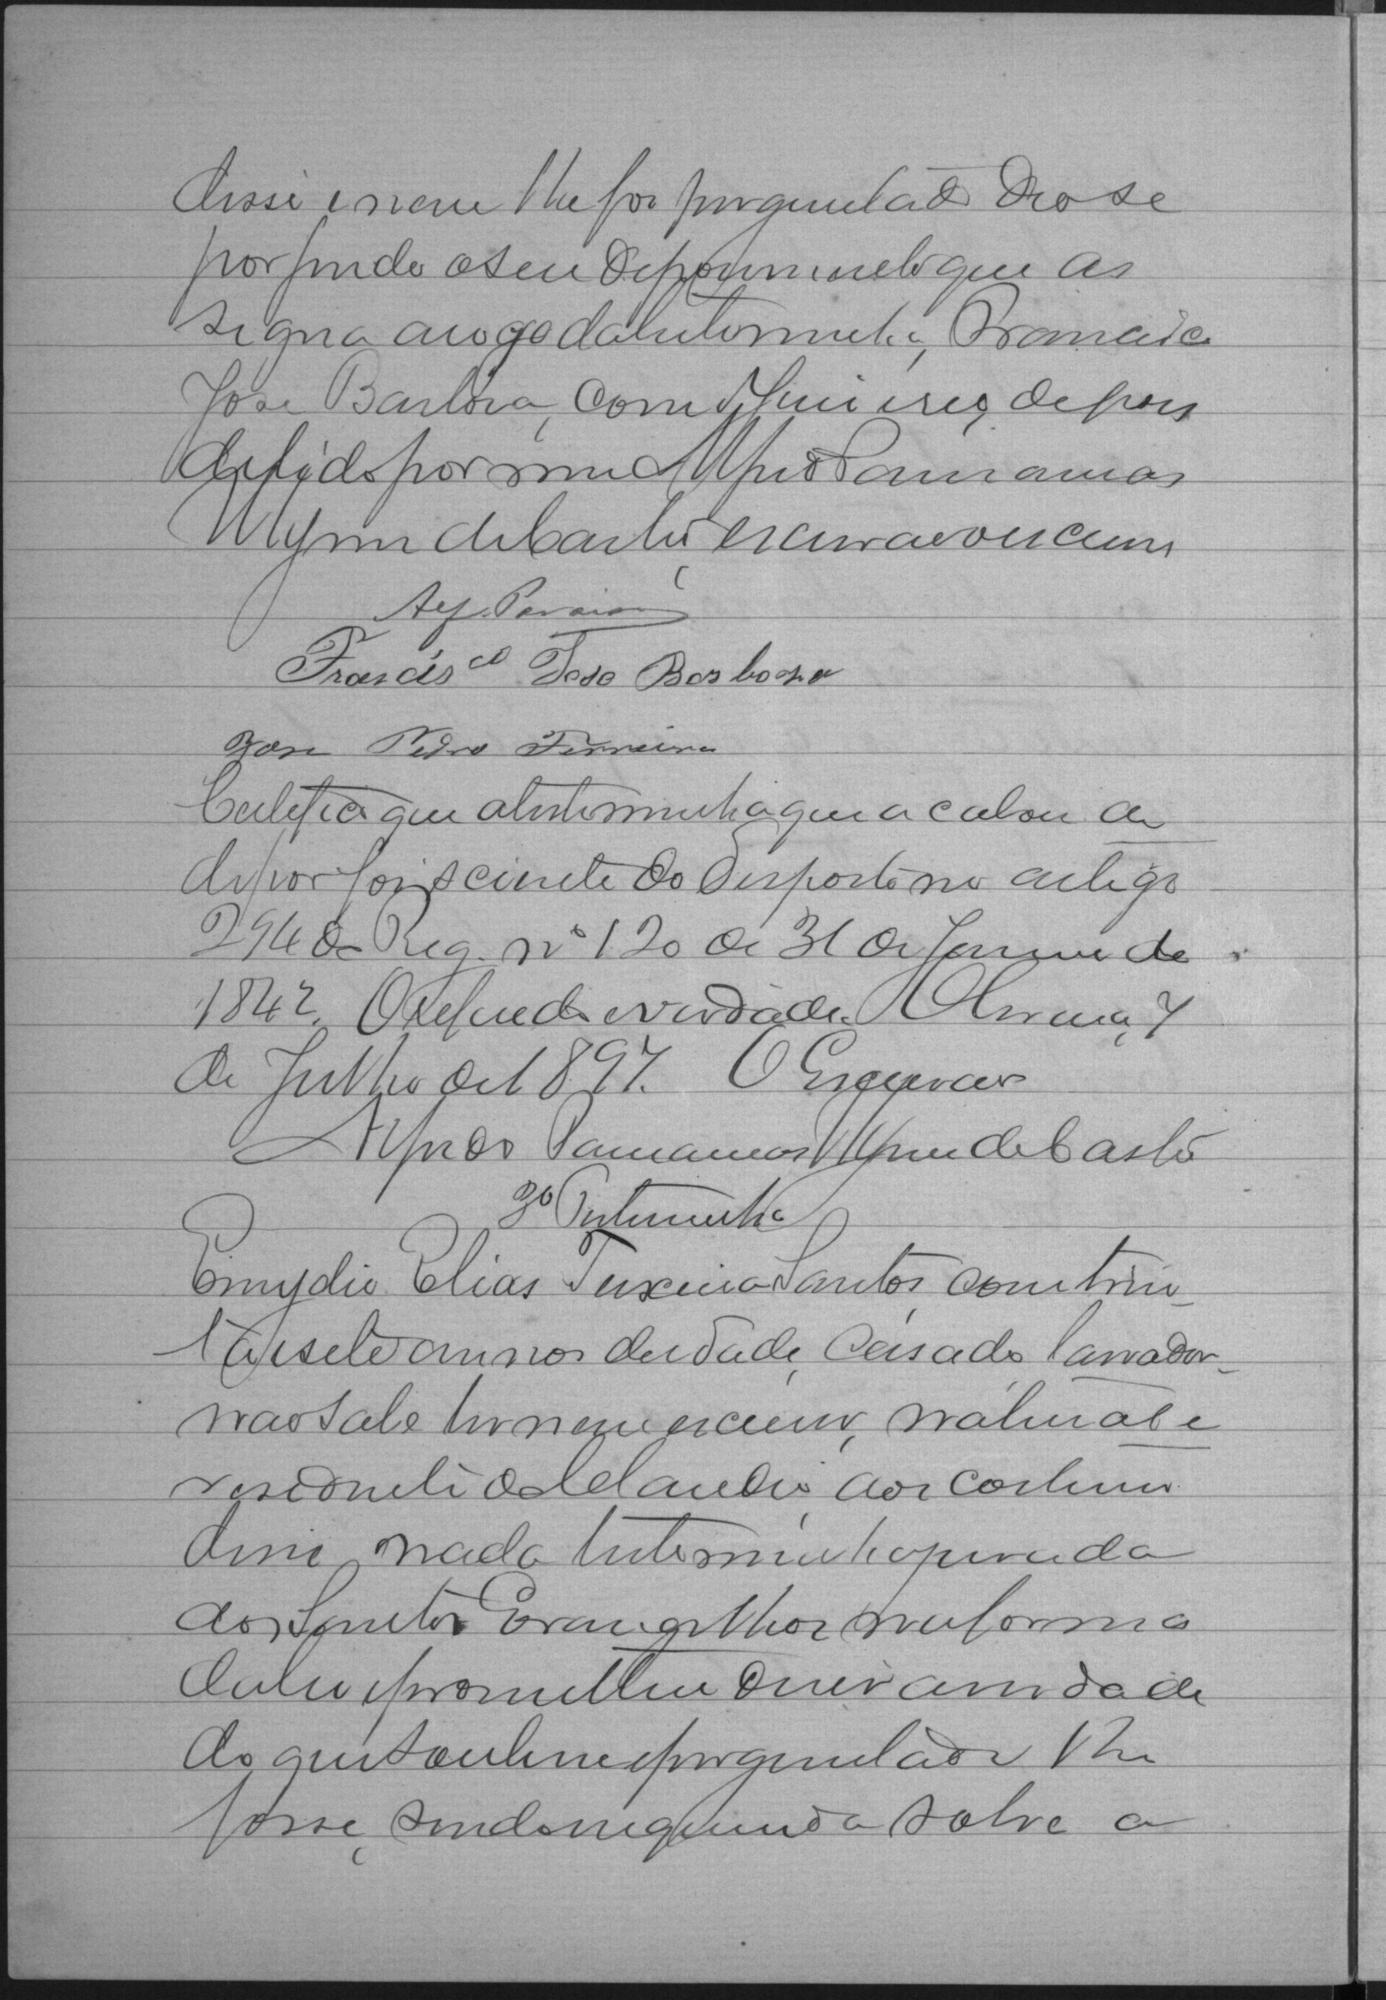 disse e nem lhe foi perguntado Deo se
por findo o seu depoimento que as
signa a rogo da testemunha, Francisco
José Barbosa, com o Juiz e reo, depois
de lido por mim Alfredo
de Castro, escrivão o escrevi
Francisco Jose Barbosa
Jose Pedro Ferreira
Certifico que a testemunha que acabou de
depor foi sciente do disposto no artigo
294 do Reg. nº 120 de 31 de Janeiro de
1842. O referido é verdade. 7
de Julho de 1897. O Escrivão
Alfredo de Castro
3ª Testemunha
Emydio Elias Teixeira Santos, com trin-
ta e sete annos de idade, casado, lavrador
não sabe ler nem escrever, natural e
residente aos costumes
disse nada. testemunha jurada
aos Santos Evangelhos na forma
da lei e prometteu dizer a verdade
do que soubesse e perguntado lhe
fosse, sendo inquirida sobre a